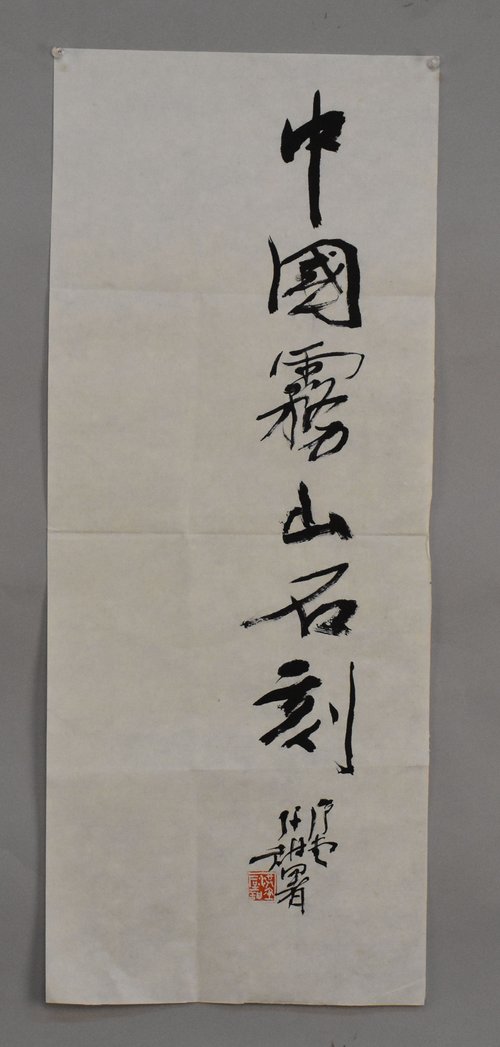 中國霧山石刻